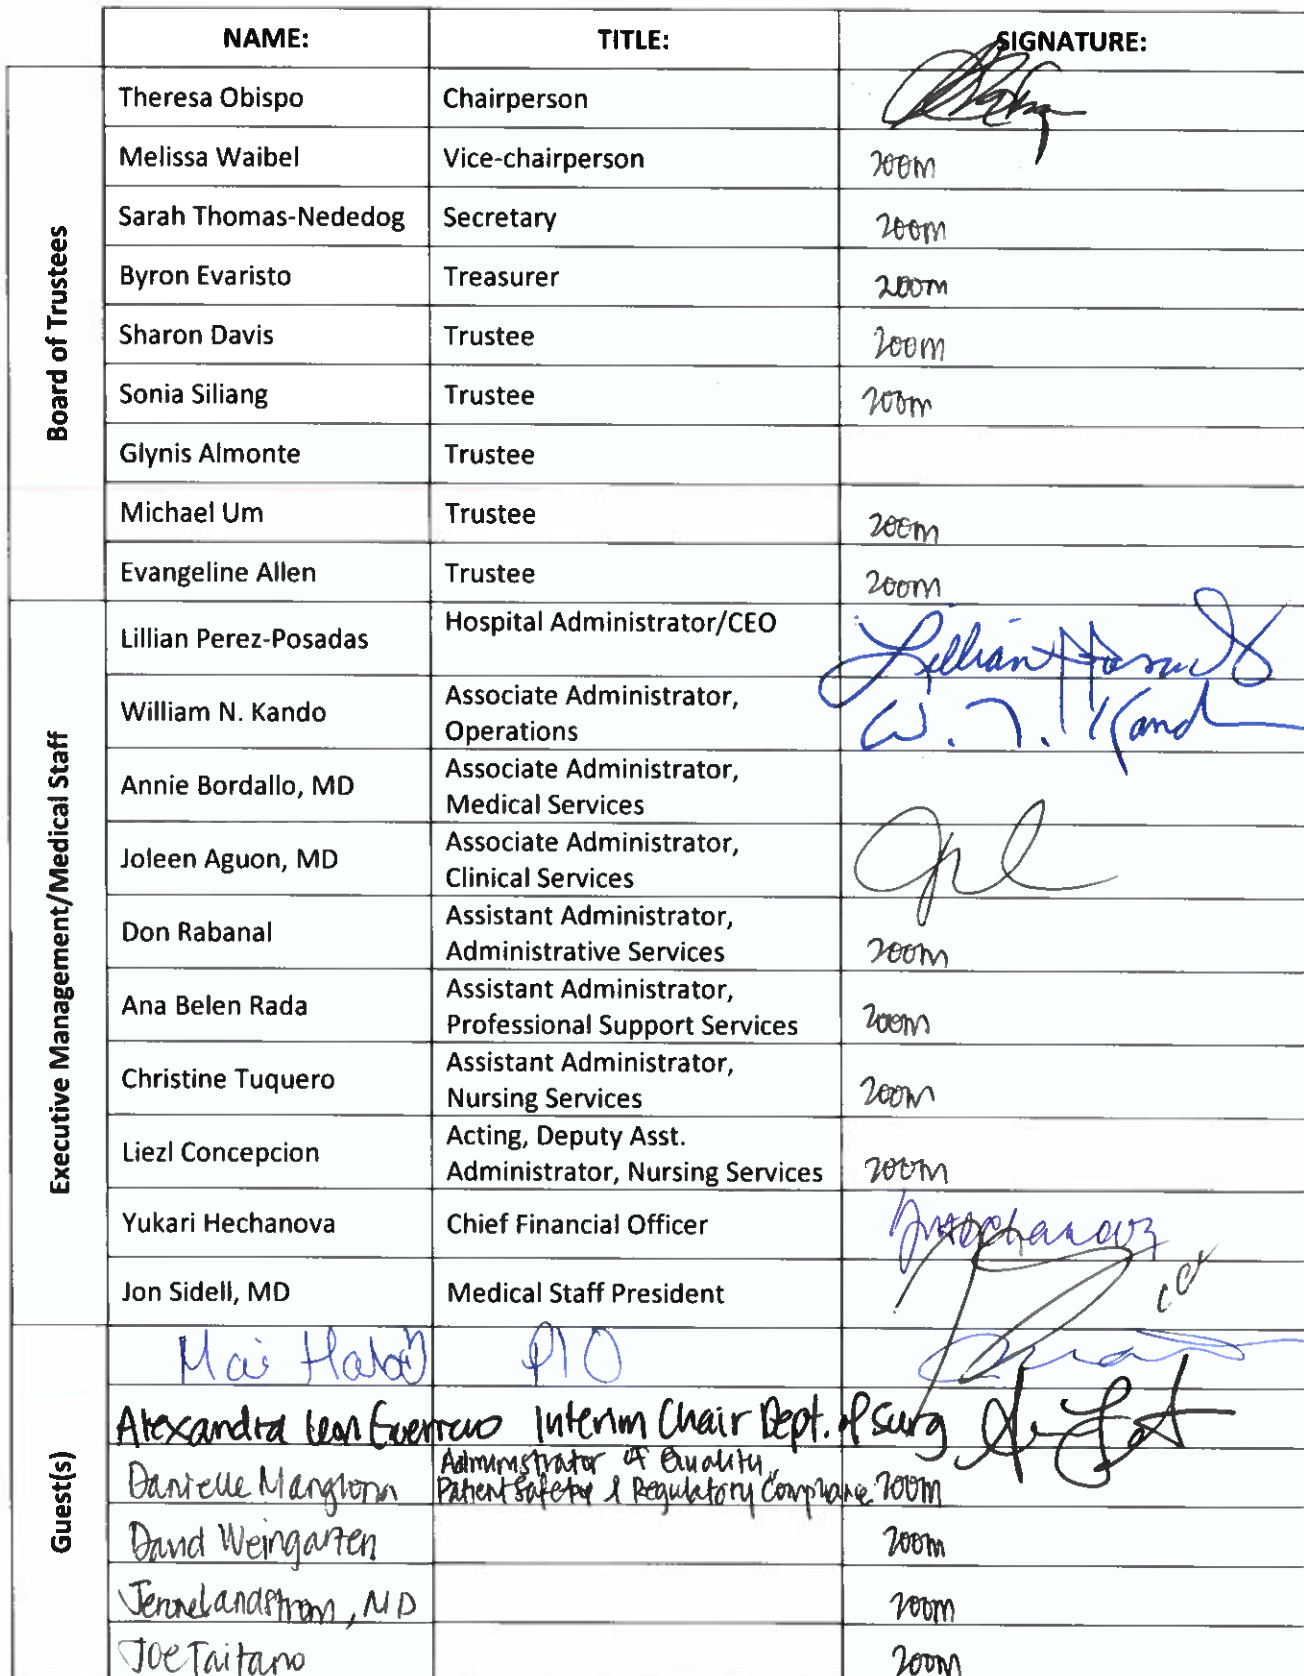 NAME: TITLE: SIGNATURE:
Board of Trustees
Theresa Obispo Chairperson
Melissa Waibel Vice-chairperson zoom
Sarah Thomas-Nededog Secretary zoom
Byron Evaristo Treasurer zoom
Sharon Davis Trustee zoom
Sonia Siliang Trustee zoom
Glynis Almonte Trustee
Michael Um Trustee zoom
Evangeline Allen Trustee zoom
Executive Management/Medical Staff
Lillian Perez-Posadas Hospital Administrator/CEO Lillian Posadas
William N. Kando Associate Administrator,
Operations W. N. Kando
Annie Bordallo, MD Associate Administrator,
Medical Services
Joleen Aguon, MD Associate Administrator,
Clinical Services
Don Rabanal Assistant Administrator,
Administrative Services zoom
Ana Belen Rada Assistant Administrator,
Professional Support Services zoom
Christine Tuquero Assistant Administrator,
Nursing Services zoom
Liezl Concepcion Acting, Deputy Asst.
Administrator, Nursing Services zoom
Yukari Hechanova Chief Financial Officer
Jon Sidell, MD Medical Staff President
Guest(s)
Mai Habib PIO
Alexandra Leon Guerrero Interim Chair Dept. of Surg
Danielle Manglona Administrator of Quality,
Patient Safety & Regulatory Compliance zoom
David Weingarten zoom
Jenne Landstrom, MD zoom
Joe Taitano zoom